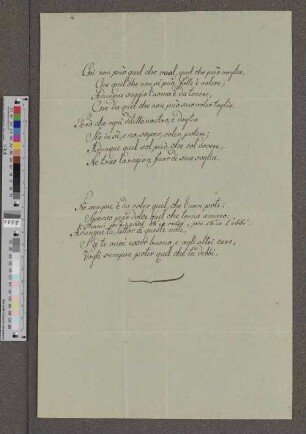 Chi non può quel che vuol, quel che può voglia,
Che quel che non si può, folle è volere;
Adunque saggio l'uomo è da tenere,
Che da quel che non può suo voler toglia.
Però che ogni diletto nostro, e doglia
Sta in sì, e no, saper, voler, potere;
Adunque quel sol può, che col dovere,
Ne trae la ragion fuor di sua soglia.
Ne sempre è da voler quel, che l'uom pote:
Spesso par dolce quel che torna amaro;
Piansi già quel ch'io volsi, poi ch'io l'ebbi.
Adunque tu, lettor di queste note,
S'a te vuoi esser buono, e agli altri caro,
Vogli sempre poter quel che tu debbi.